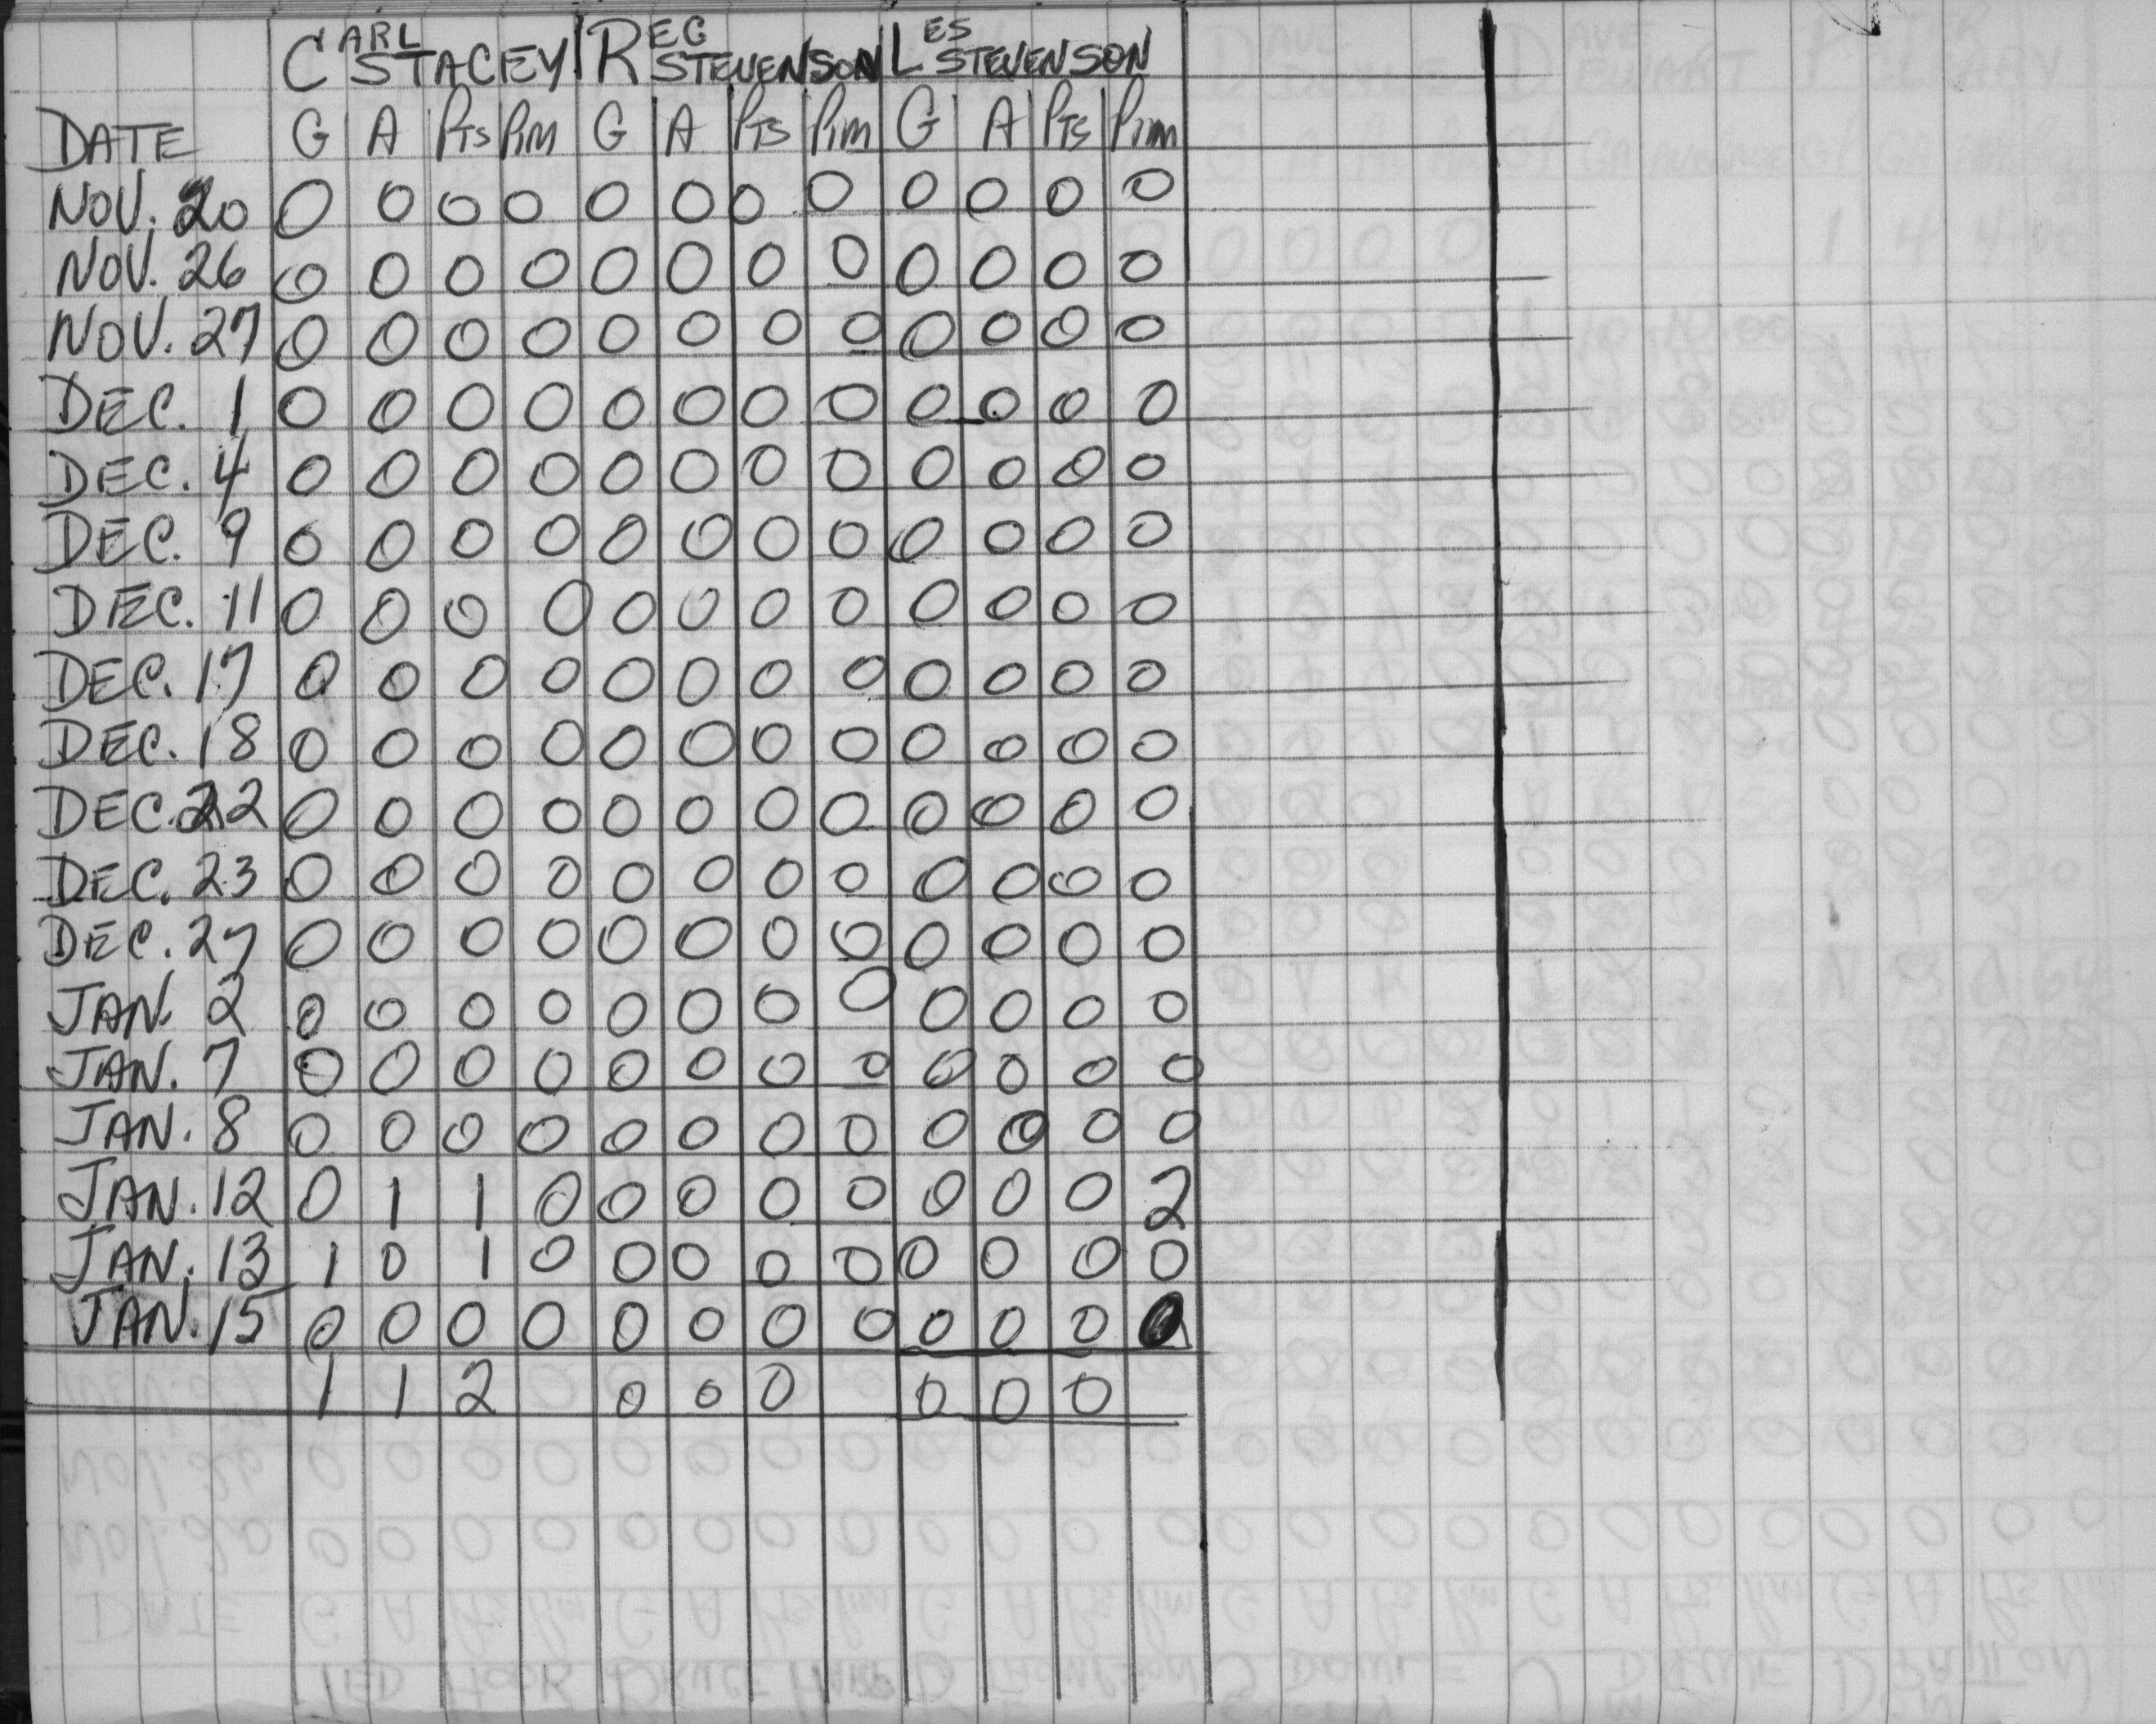 CARL STACEY REG STEVENSON LES STEVENSON
DATE G A PTS PIM G A PTS PIM G A PTS PIM
NOV. 20 0 0 0 0 0 0 0 0 0 0 0 0
NOV. 26 0 0 0 0 0 0 0 0 0 0 0 0
NOV. 27 0 0 0 0 0 0 0 0 0 0 0 0
DEC. 1 0 0 0 0 0 0 0 0 0 0 0 0
DEC. 4 0 0 0 0 0 0 0 0 0 0 0 0
DEC. 9 0 0 0 0 0 0 0 0 0 0 0 0
DEC. 11 0 0 0 0 0 0 0 0 0 0 0 0
DEC. 17 0 0 0 0 0 0 0 0 0 0 0 0
DEC. 18 0 0 0 0 0 0 0 0 0 0 0 0
DEC. 22 0 0 0 0 0 0 0 0 0 0 0 0
DEC. 23 0 0 0 0 0 0 0 0 0 0 0 0
DEC. 27 0 0 0 0 0 0 0 0 0 0 0 0
JAN. 2 0 0 0 0 0 0 0 0 0 0 0 0
JAN. 7 0 0 0 0 0 0 0 0 0 0 0 0
JAN. 8 0 0 0 0 0 0 0 0 0 0 0 0
JAN. 12 0 1 1 0 0 0 0 0 0 0 0 2
JAN. 13 1 0 1 0 0 0 0 0 0 0 0 0
JAN. 15 0 0 0 0 0 0 0 0 0 0 0 0
1 1 2 0 0 0 0 0 0